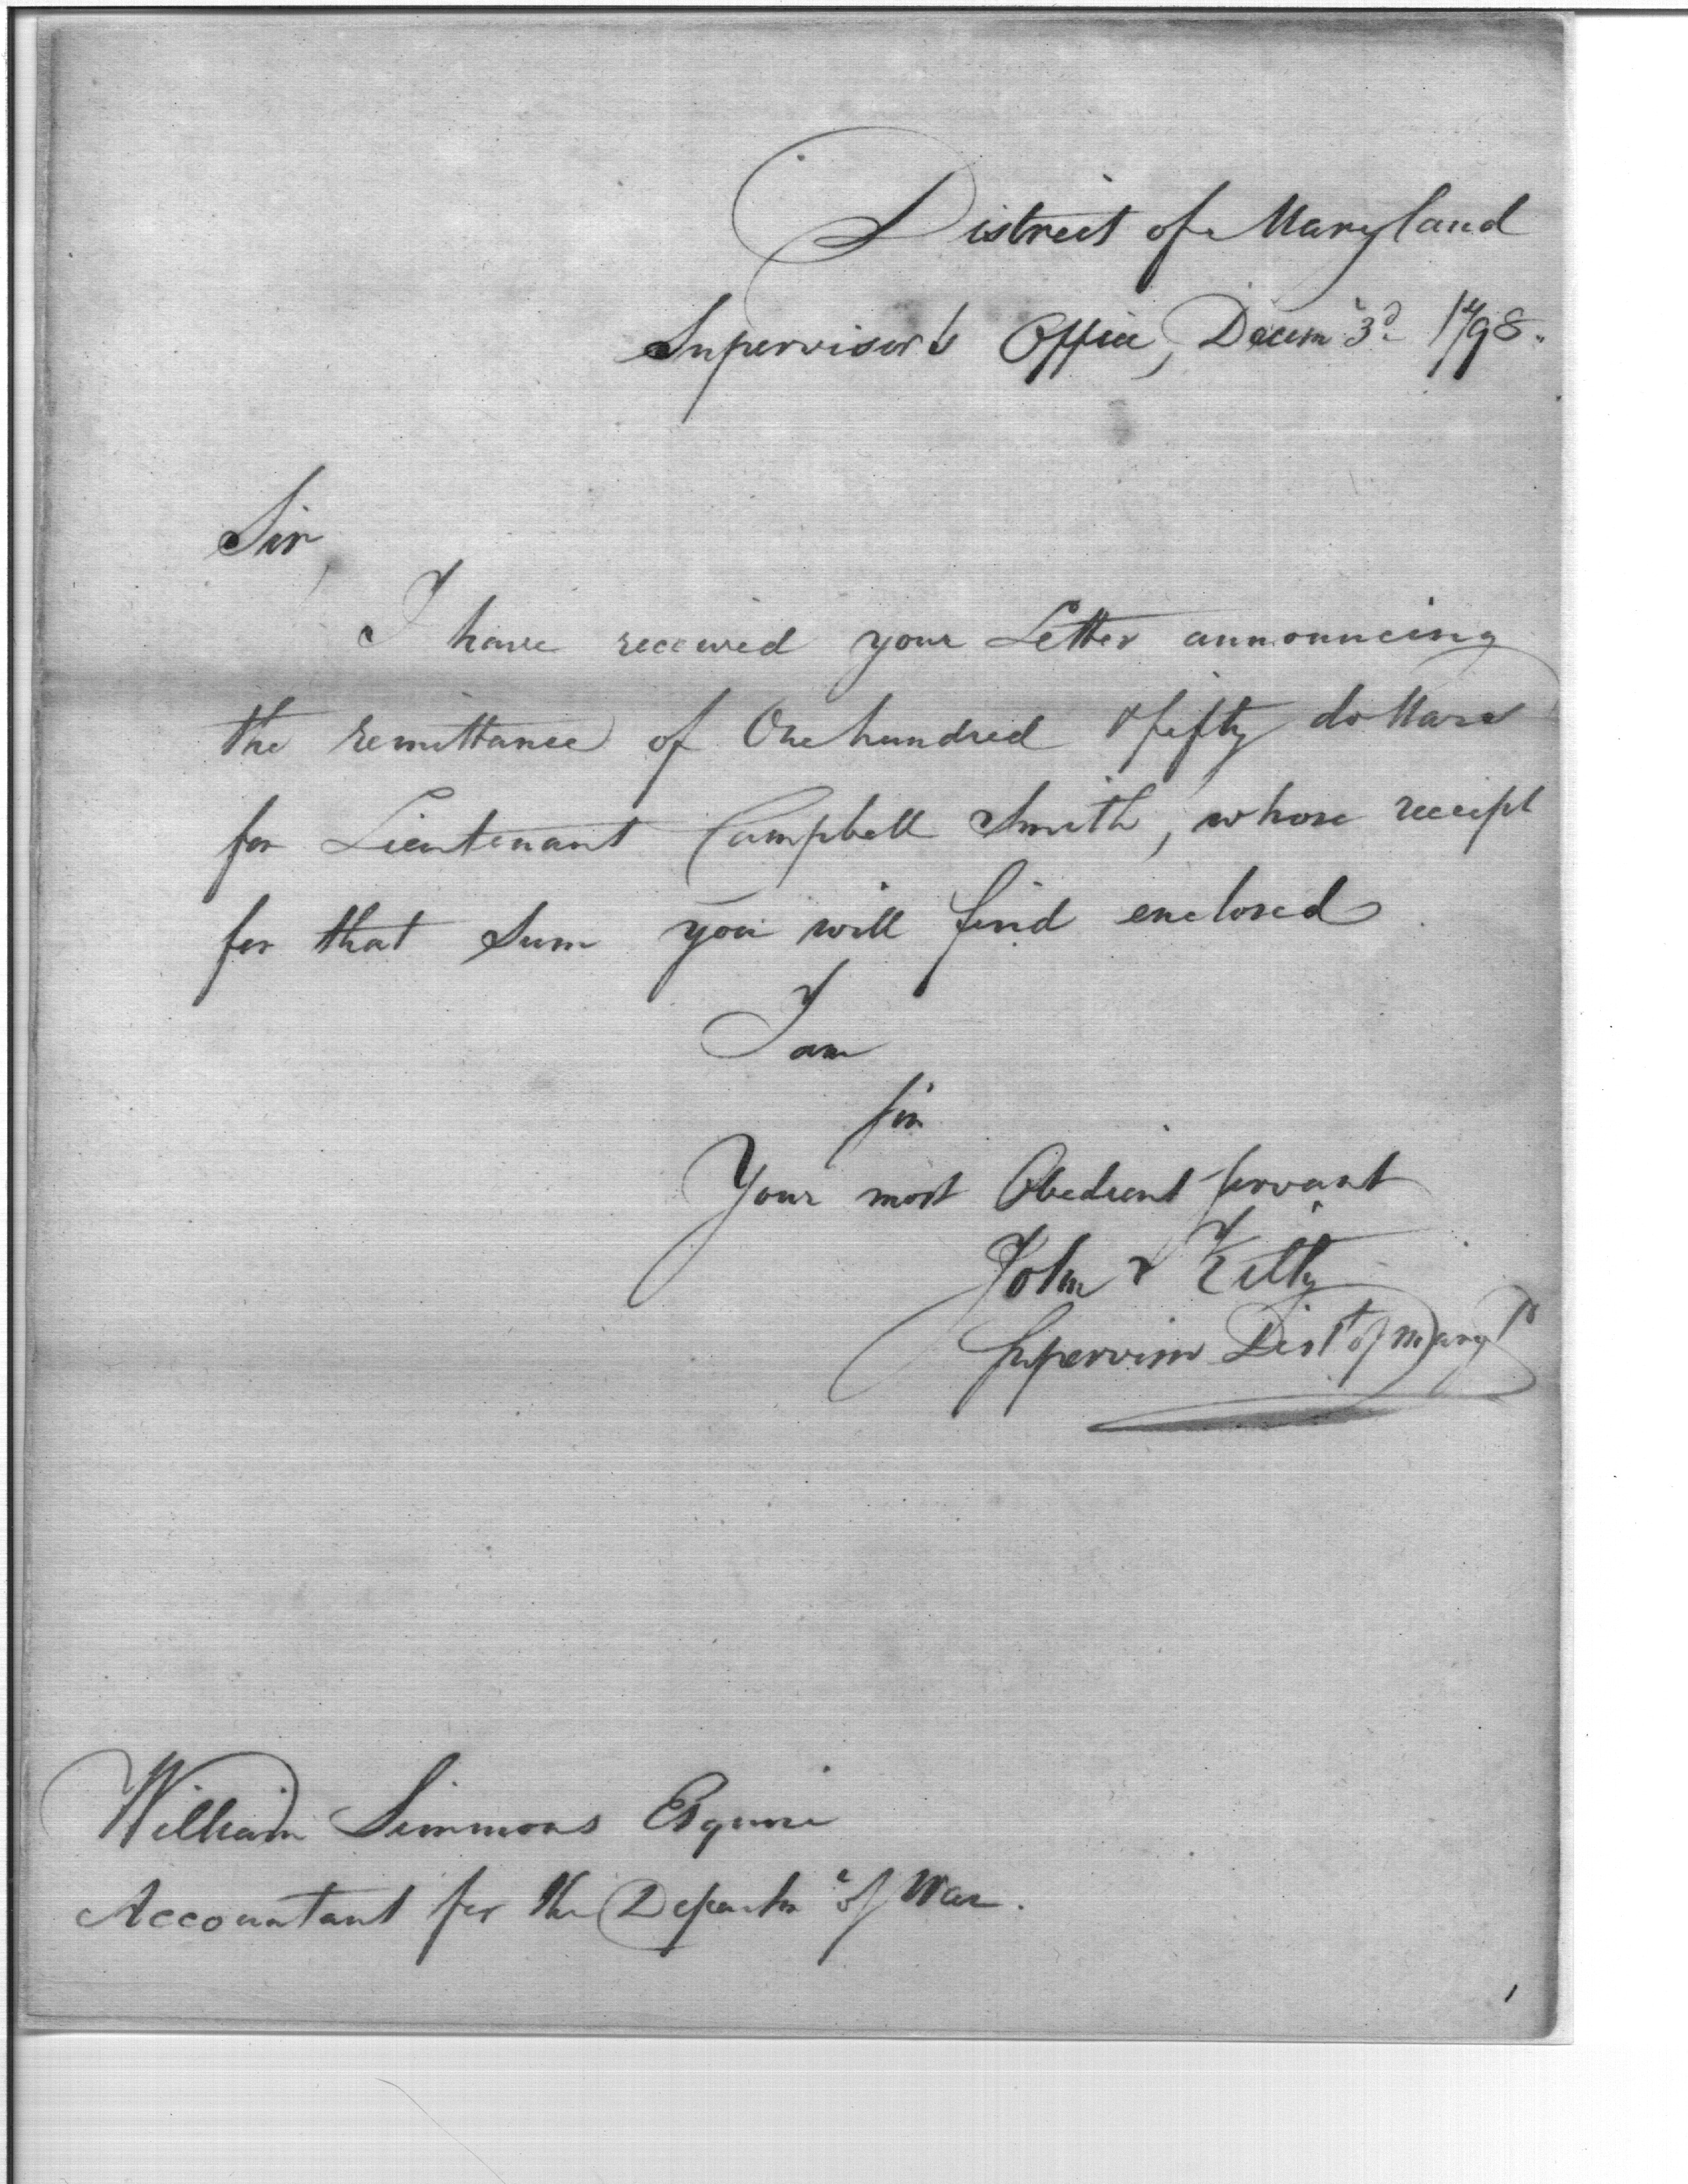 District of Maryland
Supervisor's Office, Decem.r 3d 1798.
Sir,
I have received your Letter announcing
the remittance of One hundred & fifty dollars
for Lieutenant Campbell Smith, whose receipt
for that Sum you will find enclosed.
I am
Sir
Your most Obedient servant
John Kilty
Supervisor Dist of Maryd
William Simmons Esquire
Accountant for the Departm.t of War.